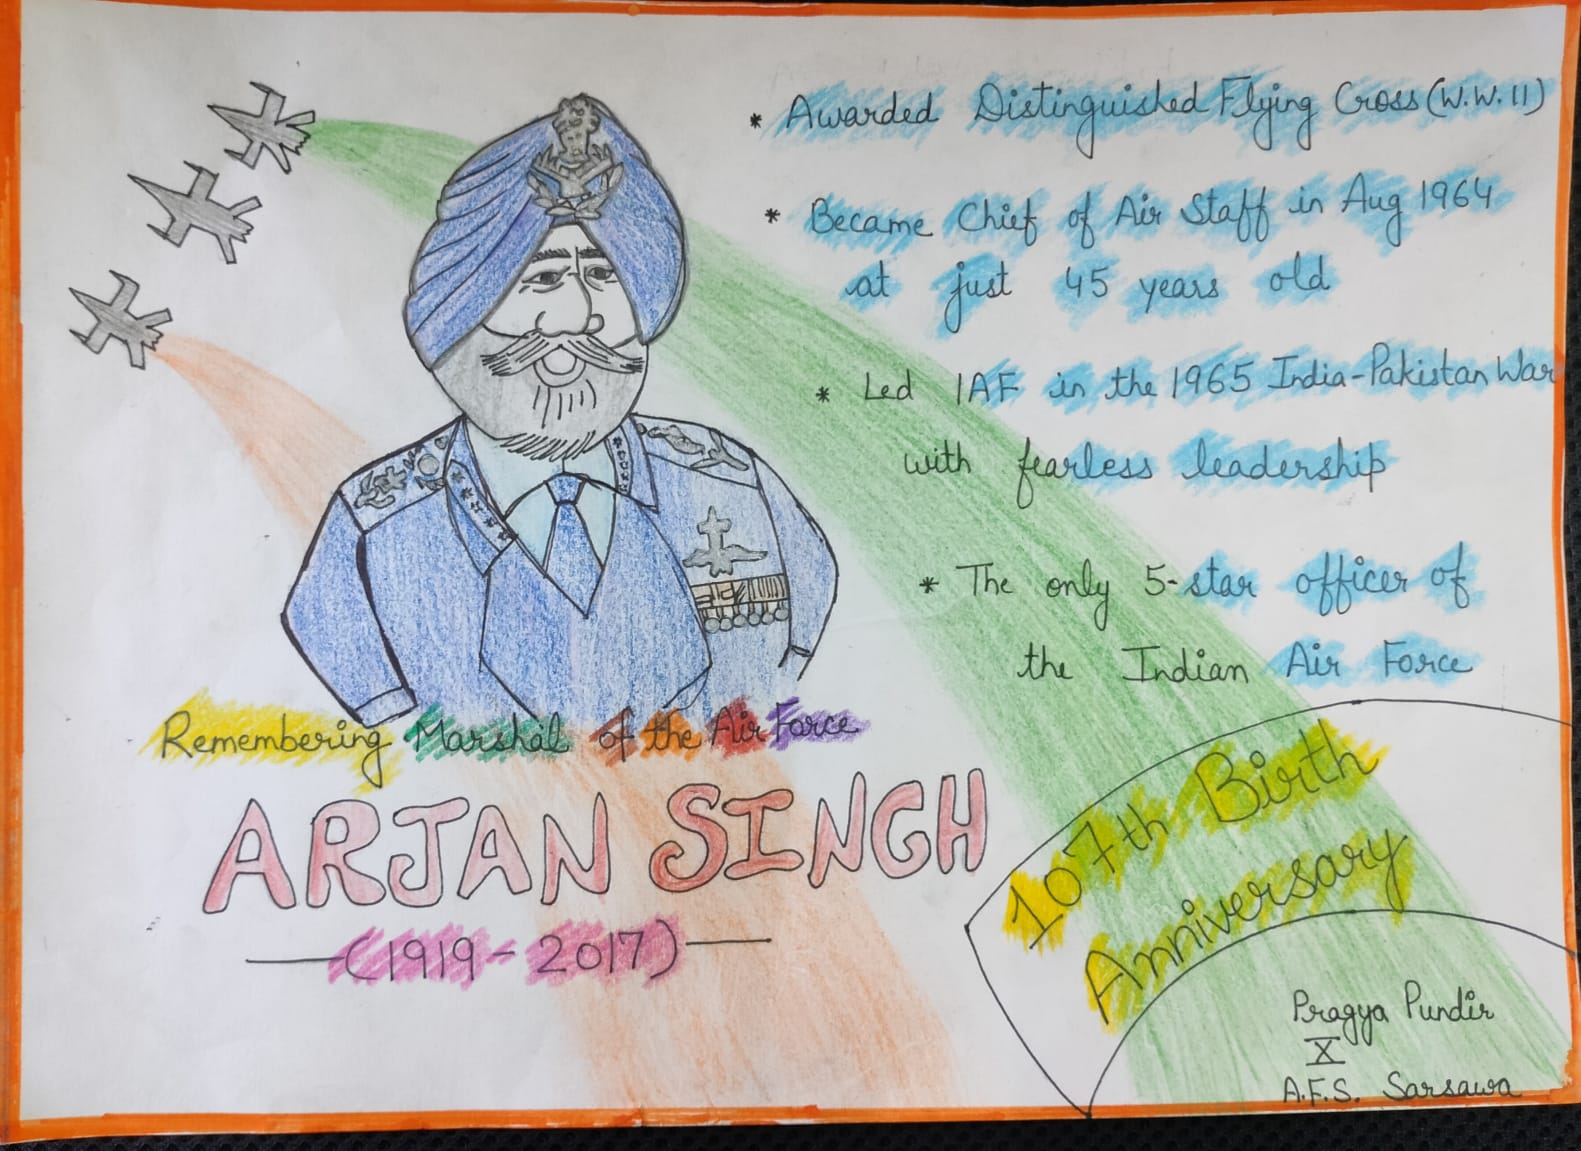 * Awarded Distinguished Flying Cross (W.W.II)
* Became Chief of Air Staff in Aug 1964
at just 45 years old
* Led IAF in the 1965 India-Pakistan War
with fearless leadership
* The only 5-star officer of
the Indian Air Force
Remembering Marshal of the Air Force
ARJAN SINGH
(1919-2017)
107th Birth
Anniversary
Pragya Pundir
X
A.F.S. Sarsawa